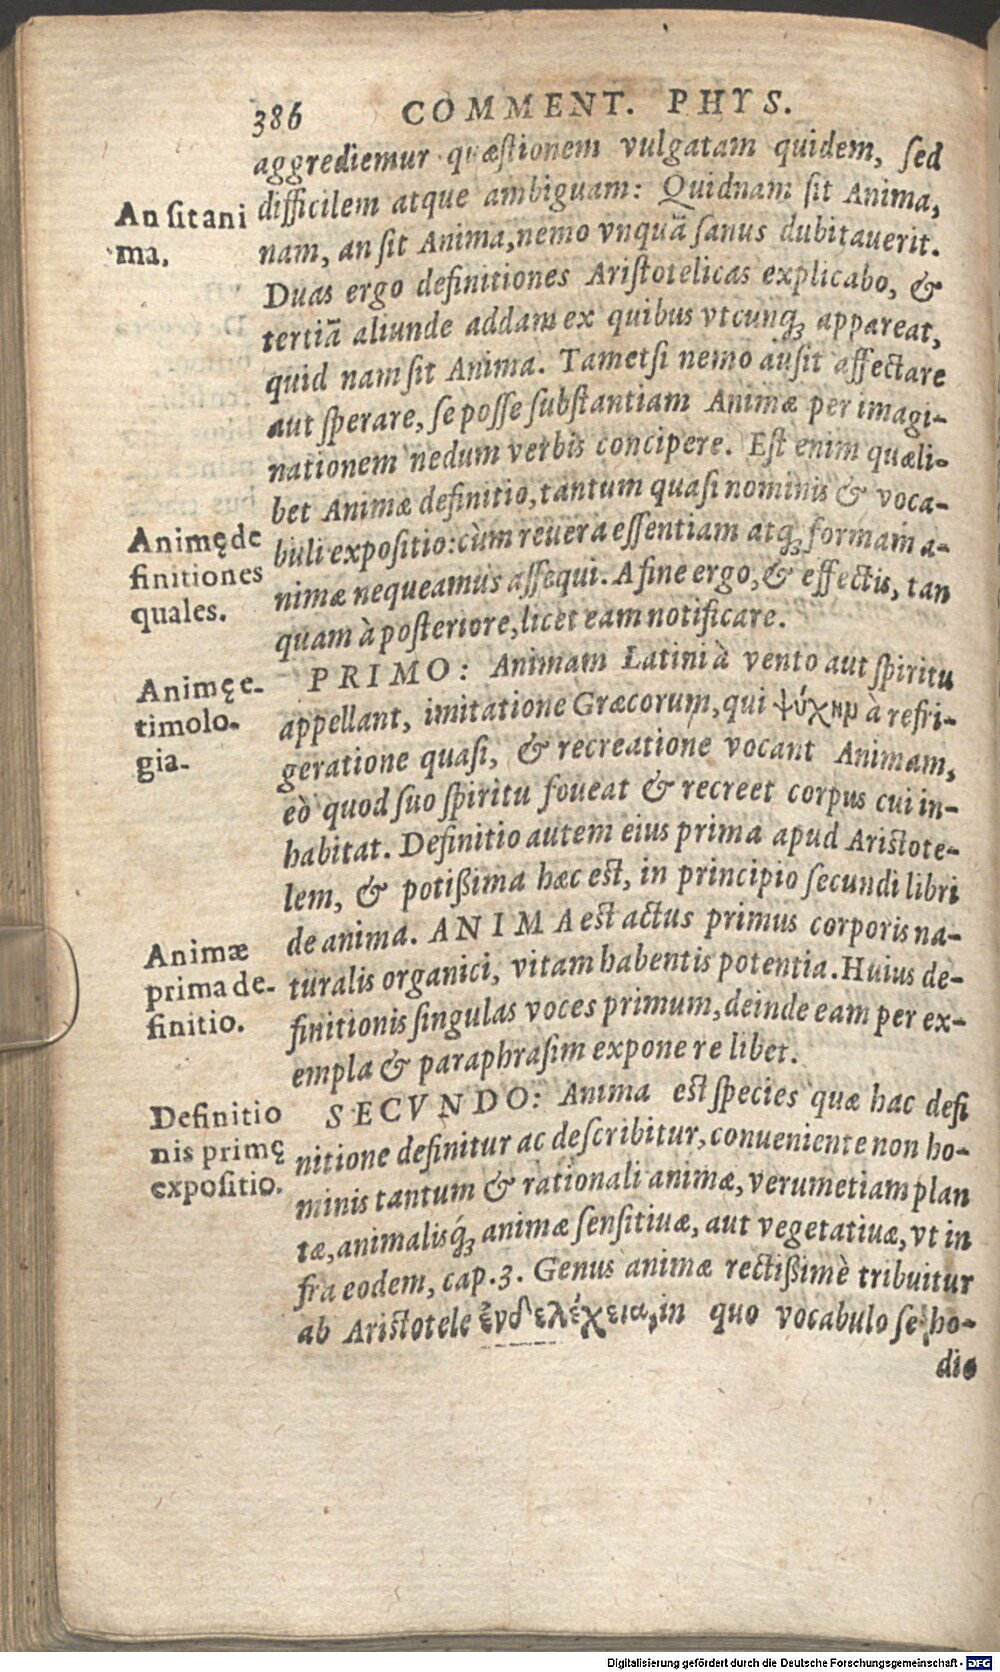 386 COMMENT. PHYS.
aggrediemur quæſtionem vulgatam quidem, ſed
difficilem atque ambiguam: Quidnam ſit Anima,
nam, an ſit Anima, nemo vnquã ſanus dubitauerit.
Duas ergo definitiones Ariſtotelicas explicabo, &
tertiã aliunde addam ex quibus vtcunqꝫ appareat,
quid nam ſit Anima. Tametſi nemo auſit affectare
aut ſperare, ſe poſſe ſubſtantiam Animæ per imagi-
nationem nedum verbis concipere. Eſt enim quæli-
bet Animæ definitio, tantum quaſi nominis & voca-
buli expoſitio: cùm reuera eſſentiam atqꝫ formam a-
nimæ nequeamus aſſequi. A fine ergo, & effectis, tan
quam à poſteriore, licet eam notificare.
PRIMO: Animam Latini à vento aut ſpiritu
appellant, imitatione Græcorum, qui ψύχην à refri-
geratione quaſi, & recreatione vocant Animam,
eò quod ſuo ſpiritu foueat & recreet corpus cui in-
habitat. Definitio autem eius prima apud Ariſtote-
lem, & potißima hæc eſt, in principio ſecundi libri
de anima. ANIMA eſt actus primus corporis na-
turalis organici, vitam habentis potentia. Huius de-
finitionis ſingulas voces primum, deinde eam per ex-
empla & paraphraſim exponere libet.
SECVNDO: Anima eſt ſpecies quæ hac defi
nitione definitur ac deſcribitur, conueniente non ho-
minis tantum & rationali animæ, verumetiam plan
tæ, animalisq́ꝫ animæ ſenſitiuæ, aut vegetatiuæ, vt in
fra eodem, cap. 3. Genus animæ rectißimè tribuitur
ab Ariſtotele ἐνδελέχεια, in quo vocabulo ſe ho-
die
An ſit ani
ma.
Animę de
finitiones
quales.
Animę e-
timolo-
gia.
Animæ
prima de-
finitio.
Definitio
nis primę
expoſitio.
Digitalisierung gefördert durch die Deutsche Forschungsgemeinschaft - DFG